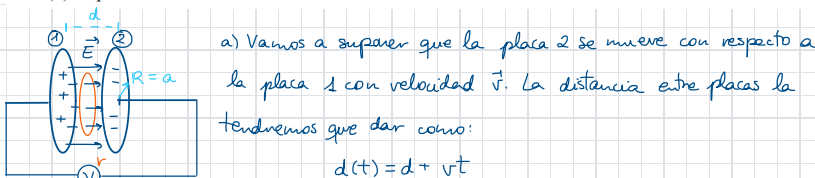 d
1
2
E
+ -
R = a
r
V
a) Vamos a suponer que la placa 2 se mueve con respecto a
la placa 1 con velocidad v. La distancia entre placas la
tendremos que dar como:
d(t) = d + vt